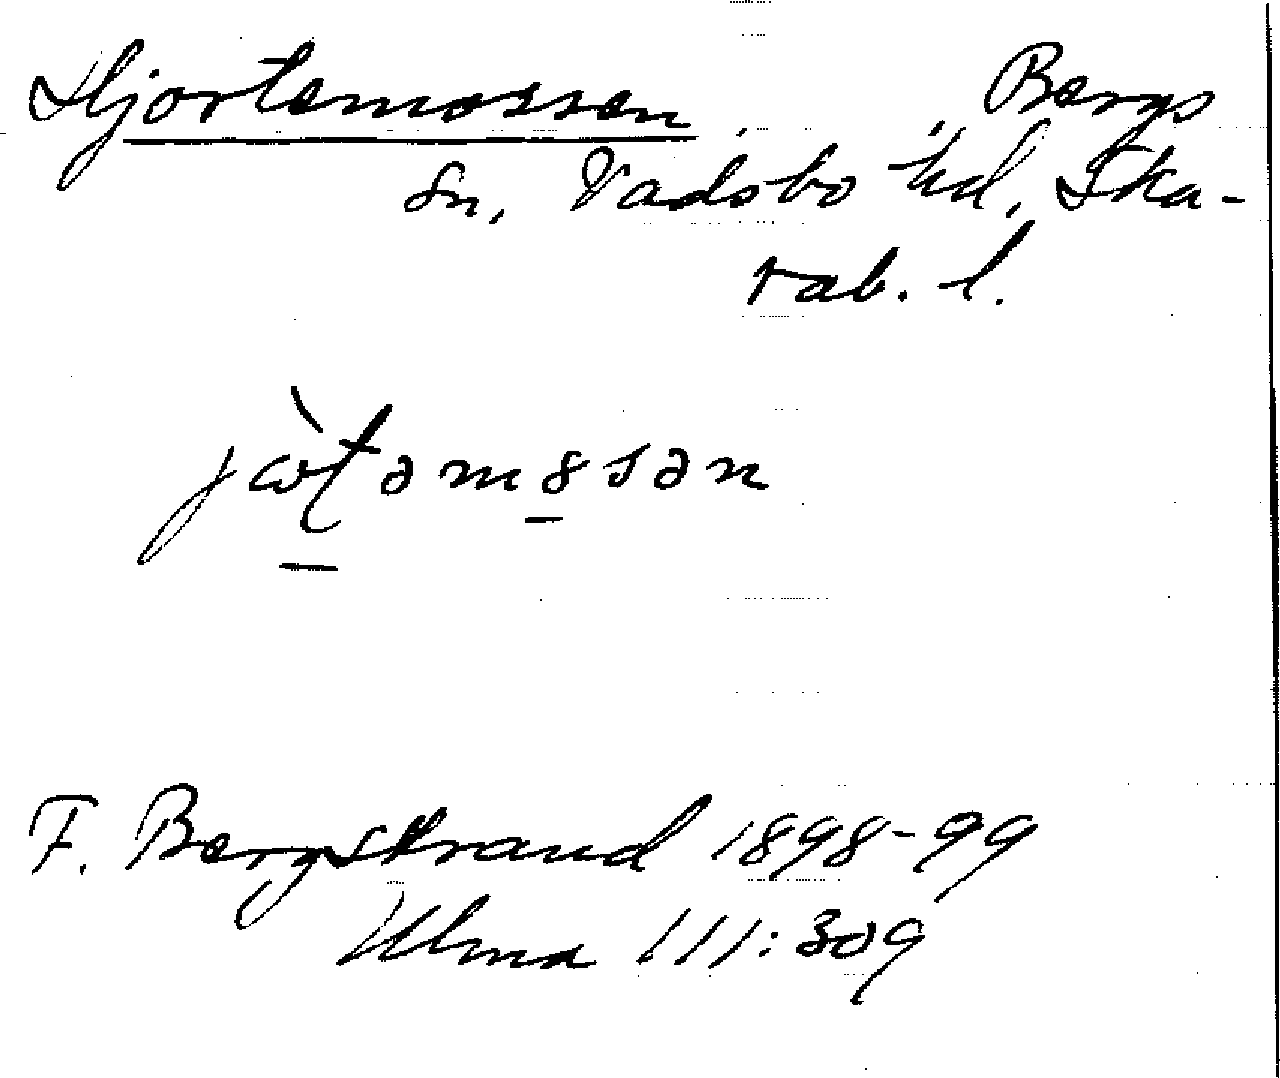 Hjortemossen, Bergs
sn, Vadsbo hd, Ska-
rab. l.
F. Bergstrand 1898-99
Ulma 111:309